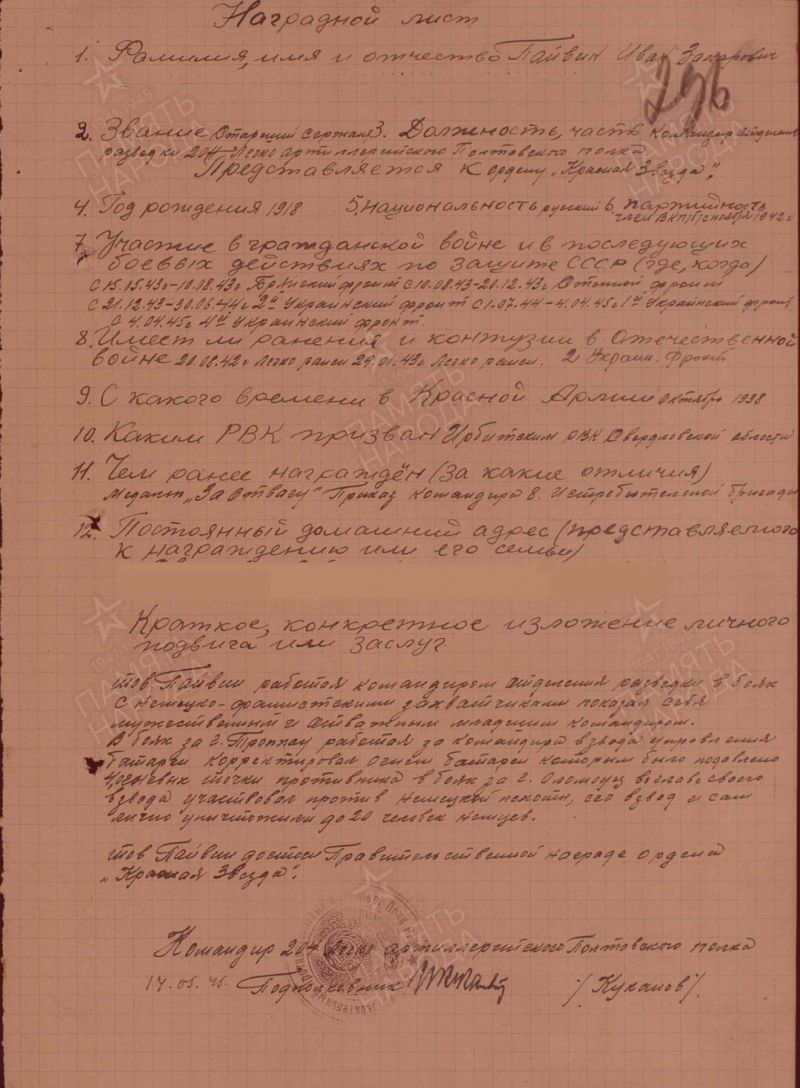 Наградной лист
1. Фамилия, имя и отчество Пайвин Иван Захарович
296
2. Звание Старший Сержант 3. Должность, часть Командир отделения
разведки 204 Легко артиллерийского Полтовского полка
Представляется к ордену „Красная Звезда".
4. Год рождения 1918 5. Национальность русский 6. партийность
член ВКП(б) с ноября 1942 г
7. Участие в гражданской войне и в последующих
боевых действиях по защите СССР (где, когда)
с 15.05.43г-10.08.43г Брянский фронт с 10.08.43-20.12.43г Степной фронт
с 21.12.43-30.06.44г 2й Украинский фронт с 1.07.44-4.04.45г 1й Украинский фронт
с 4.04.45г 4й Украинский фронт
8. Имеет ли ранения и контузии в Отечественной
войне 20.08.42г Легко ранен 29.01.43г Легко ранен. 2 Украин. Фронт
9. С какого времени в Красной Армии октябрь 1938
10. Каким РВК призван Ирбитским РВК Свердловской области
11. Чем ранее награждён (за какие отличия)
медалью „За Отвагу" Приказ командира 8. Истребительной бригады
12. Постоянный домашний адрес (представляемого
к награждению или его семьи)
Краткое, конкретное изложение личного
подвига или заслуг
тов Пайвин работая командиром отделения разведки в боях
с немецко-фашистскими захватчиками показал себя
мужественным и отважным младшим командиром.
В боях за г. Троппау работая за командира взвода управления
батареи корректировал огнем батареи которым было подавлено
4 огневых точки противника в боях за г. Оломоуц во главе своего
взвода участвовал против немецкой пехоты, его взвод и сам
лично уничтожили до 20 человек немцев.
тов Пайвин достоин Правительственной награде ордена
„Красная Звезда".
Командир 204 Легко артиллерийского Полтовского полка
17.05.45. Подполковник /Куканов/
ПАМЯТЬ НАРОДА